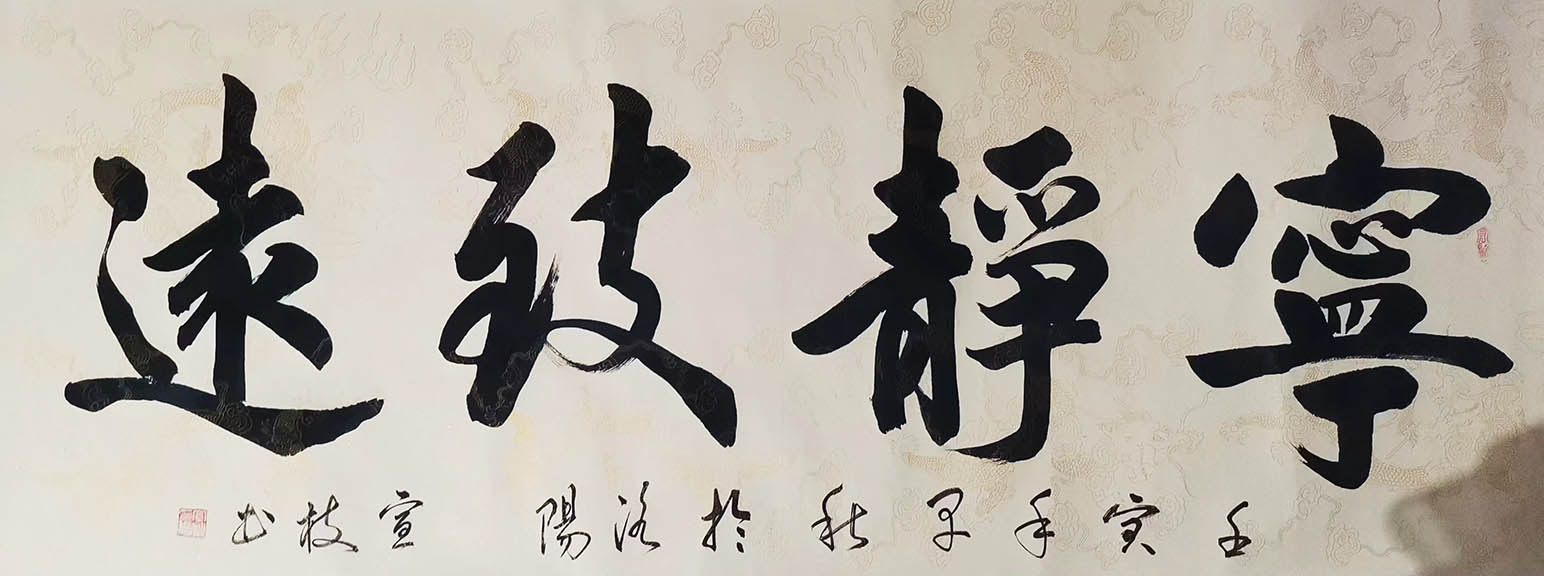 寧靜致遠
壬寅年早秋於洛陽 宣枝书